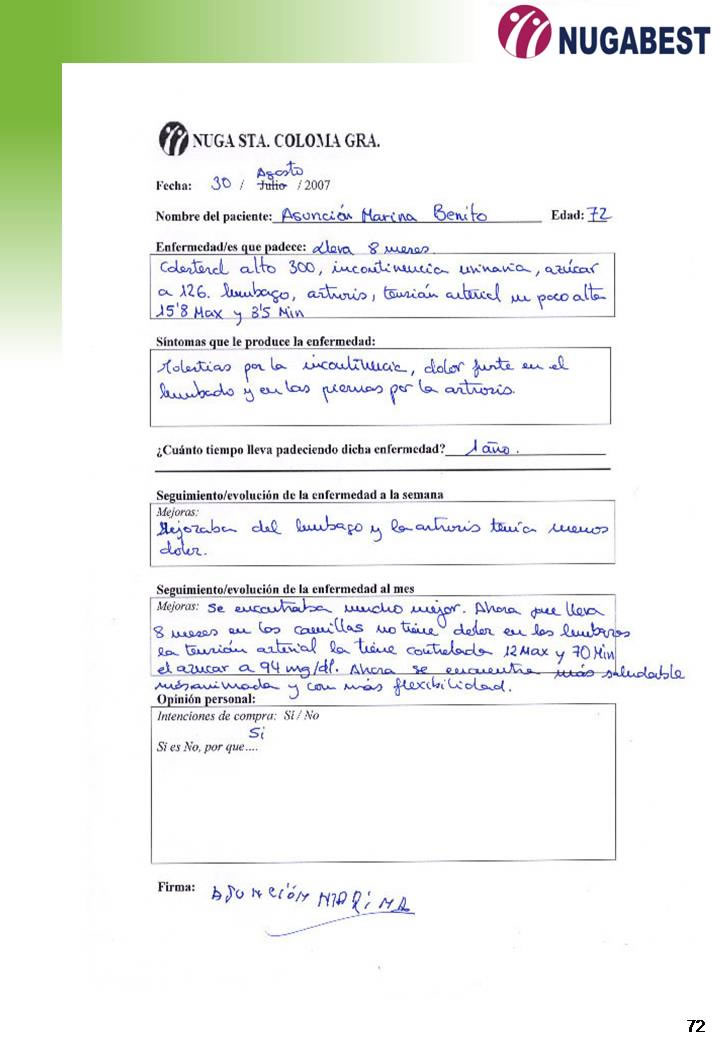 NUGABEST
NUGA STA. COLOMA GRA.
Agosto
Fecha: 30 / Julio / 2007
Nombre del paciente: Asunción Marina Benito Edad: 72
Enfermedad/es que padece: lleva 8 meses.
Colesterol alto 300, incontinencia urinaria, azúcar
a 126. lumbago, artrosis, tensión arterial un poco alta
15'8 Max y 8'5 Min
Síntomas que le produce la enfermedad:
Molestias por la incontinencia, dolor fuerte en el
lumbado y en las piernas por la artrosis.
¿Cuánto tiempo lleva padeciendo dicha enfermedad? 1 año.
Seguimiento/evolución de la enfermedad a la semana
Mejoras:
Mejoraba del lumbago y la artrosis tenía menos
dolor.
Seguimiento/evolución de la enfermedad al mes
Mejoras: Se encontraba mucho mejor. Ahora que lleva
8 meses en las camillas no tiene dolor en las lumbares
la tensión arterial la tiene controlada 12 Max y 70 Min
el azucar a 94 mg/dl. Ahora se encuentra más saludable
más animada y con más flexibilidad.
Opinión personal:
Intenciones de compra: Si / No
Si
Si es No, por que....
Firma: ASUNCIÓN MARINA
72